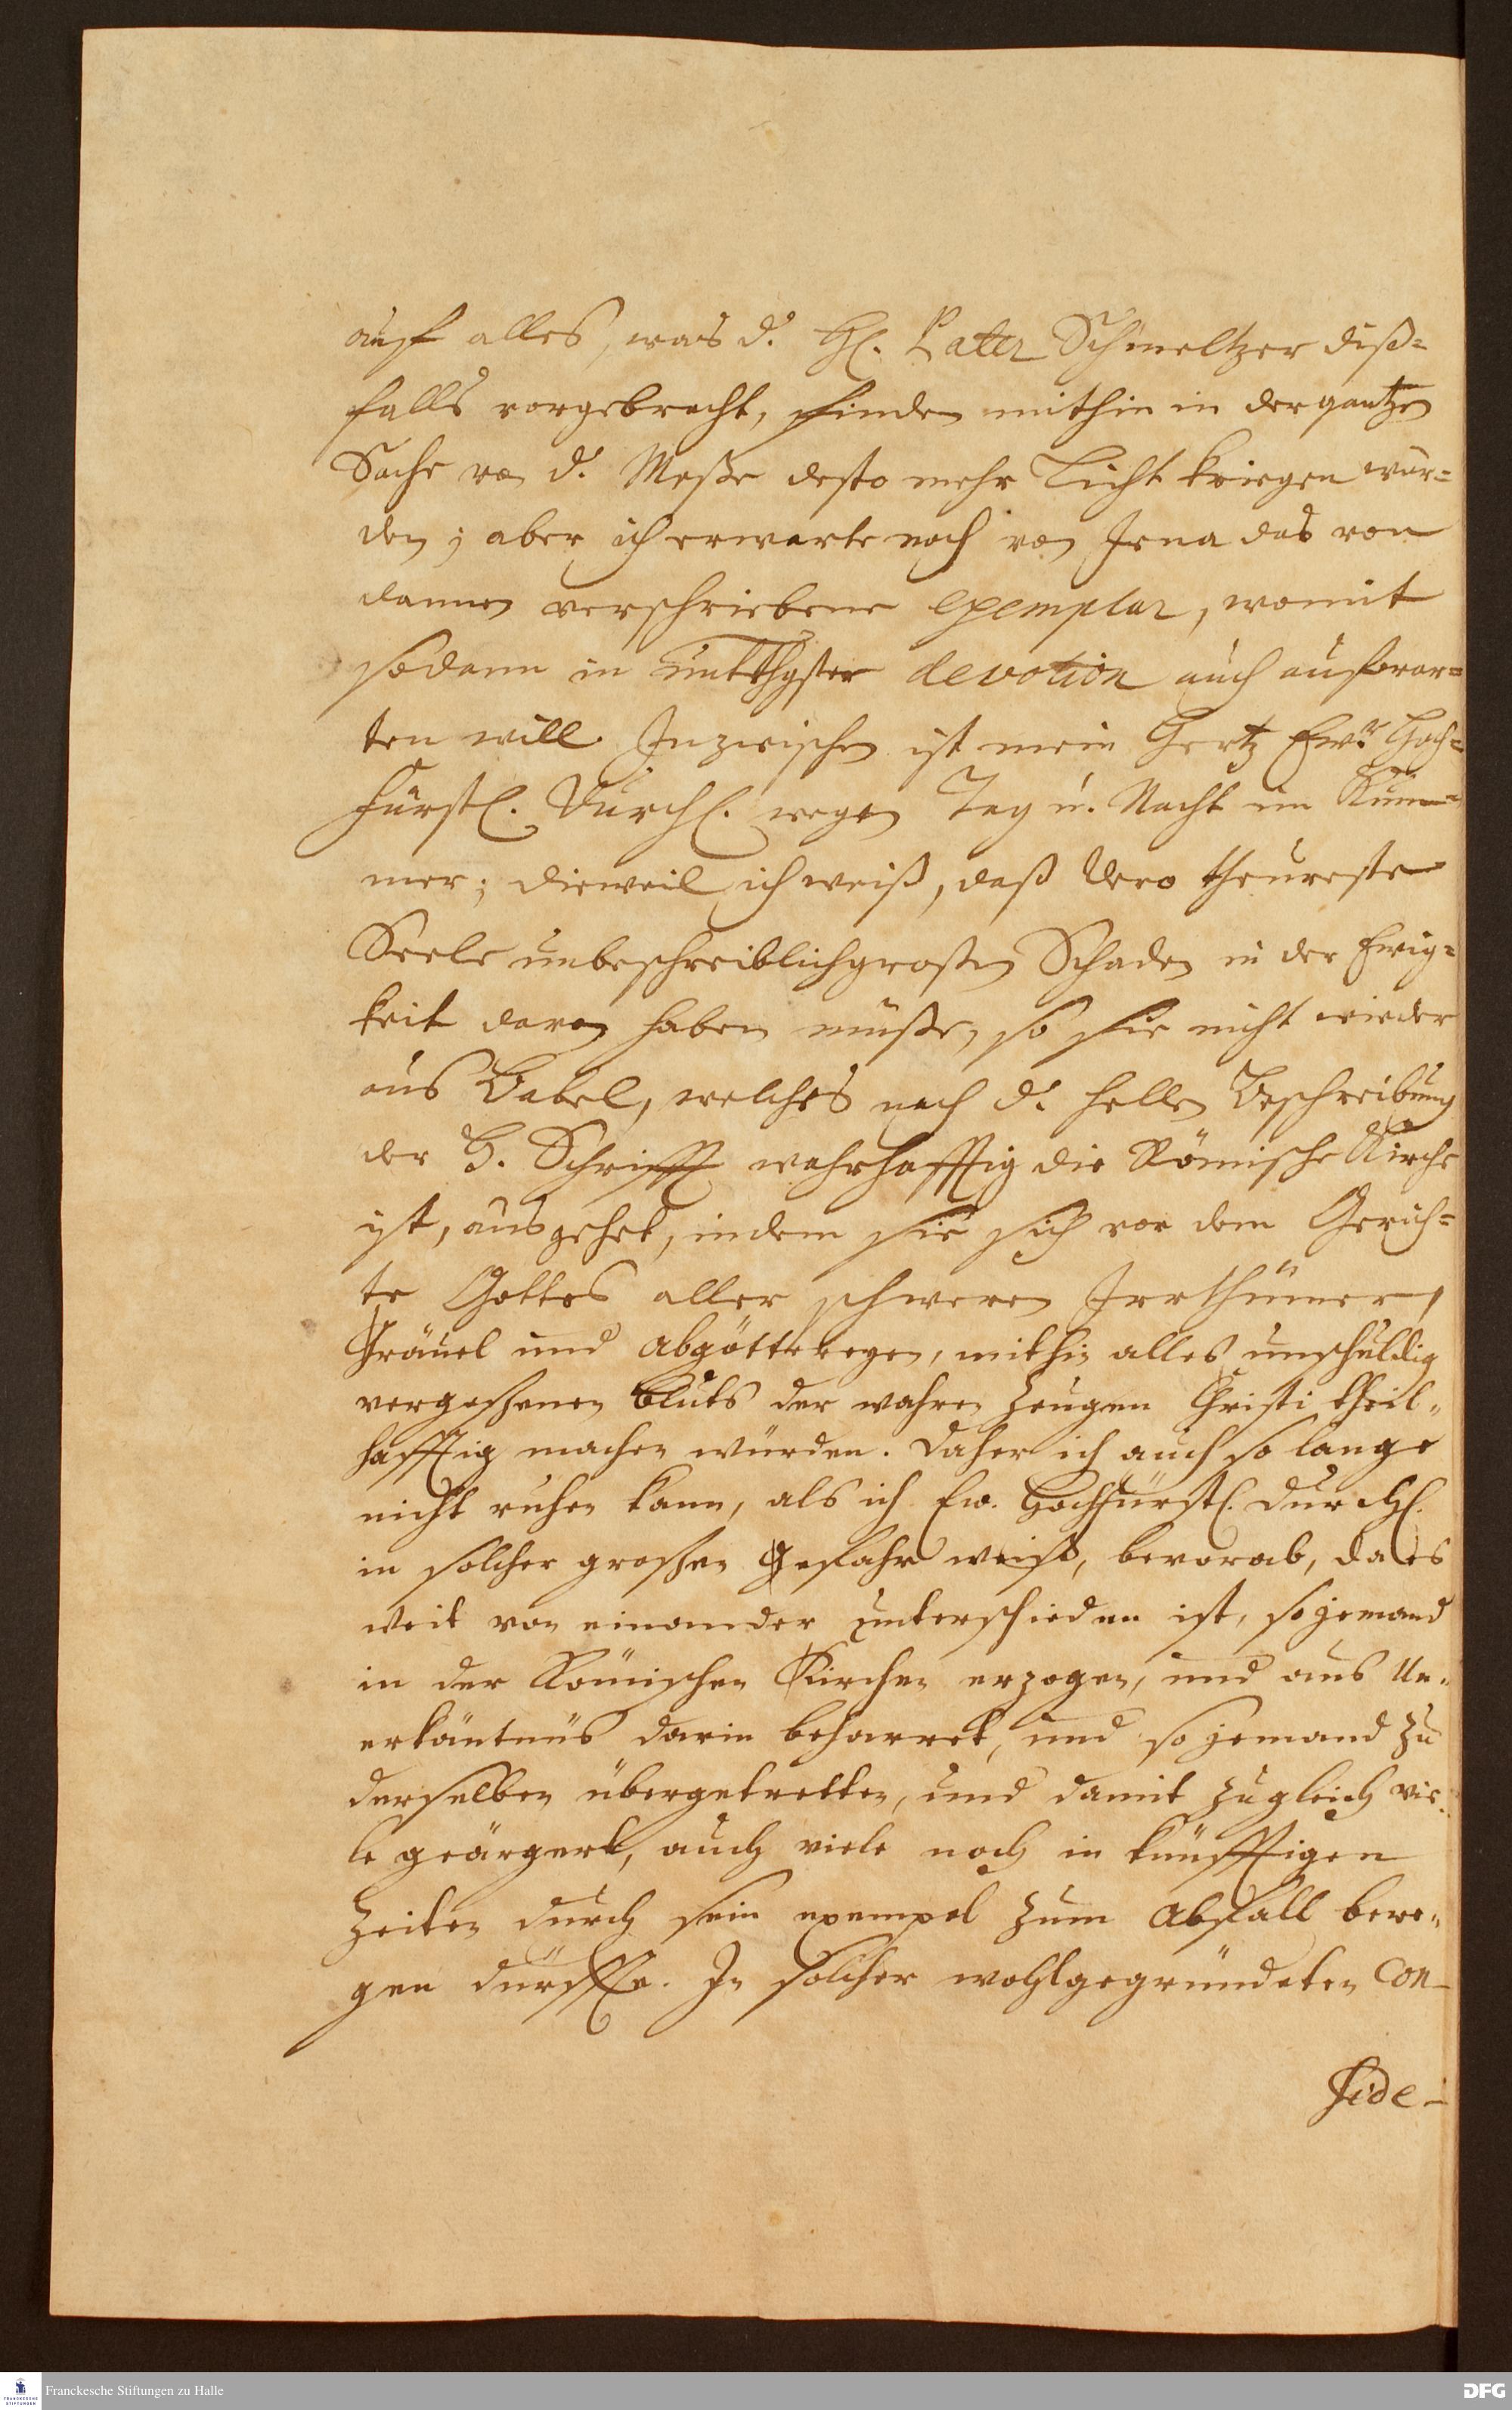 auf alles, was d. H. Pater Schmeltzer diß=
falls vorgebracht, finden mithin in der gantzen
Sache von d. Meße desto mehr Licht kriegen wür=
den; aber ich erwarte noch von Jena das von
dannen verschriebene exemplar, womit
sodann in untthgster devotion auch aufwar=
ten will. Inzwischen ist mein Hertz Ewr. Hoch=
fürstl. Durchl. wegen Tag u. Nacht im Kum=
mer; dieweil ich weiß, daß Dero theureste
Seele unbeschreiblich großen Schaden in der Ewig=
keit davon haben müße, so sie nicht wieder
aus Babel, welches nach d. hellen Beschreibung
der H. Schrifft wahrhafftig die Römische Kirche
ist, ausgehet, indem sie sich vor dem Gerich=
te Gottes aller schweren Irrthümer,
Gräuel und Abgöttereyen, mithin alles unschuldig
vergoßenen Bluts der wahren Zeugen Christi theil=
hafftig machen würden. Daher ich auch so lange
nicht ruhen kann, als ich Ew. Hochfürstl. Durchl.
in solcher großen Gefahr weiß, bevorab, da es
weit von einander unterschieden ist, so jemand
in der Römischen Kirchen erzogen, und aus Un=
erkäntnüs darin beharret, und so jemand zu
derselben übergetretten, und damit zugleich vie=
le geärgert, auch viele noch in künfftigen
Zeiten durch sein exempel zum Abfall bewe=
gen dürffte. In solcher wohlgegründeten Con-
side-
Franckesche Stiftungen zu Halle
FRANCKESCHE STIFTUNGEN
DFG